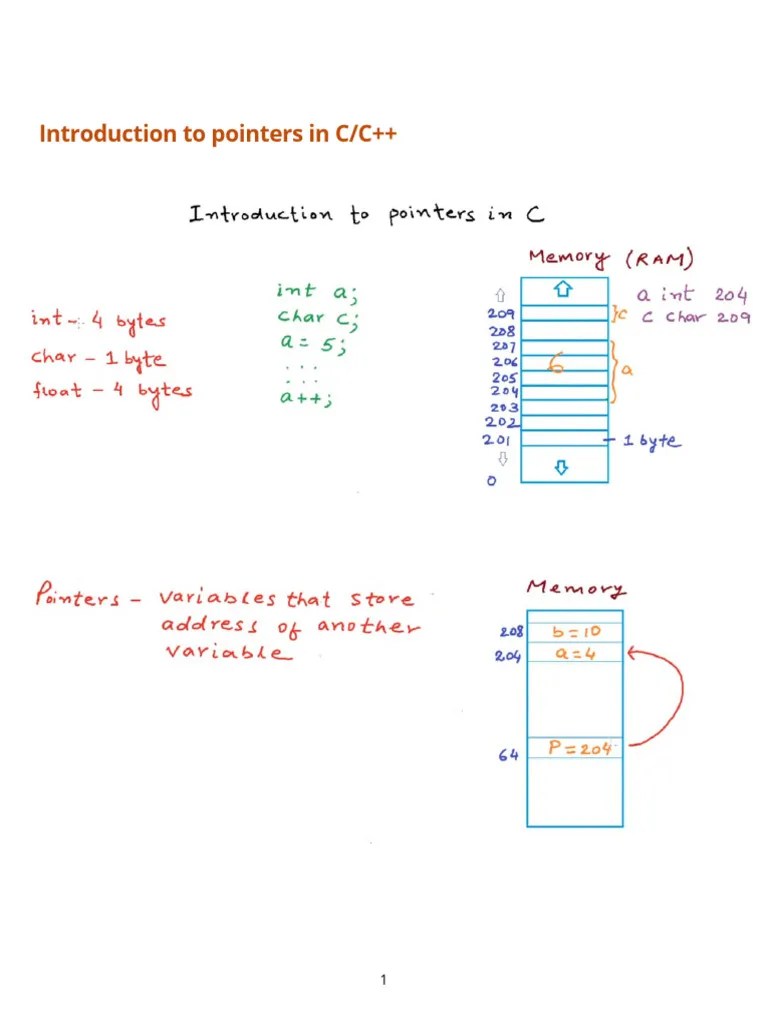 Introduction to pointers in C/C++
Introduction to pointers in C
int - 4 bytes
char - 1 byte
float - 4 bytes
int a;
char c;
a = 5;
...
...
a++;
Memory (RAM)
209
208
207
206
205
204
203
202
201
0
6
c
a
1 byte
a int 204
c char 209
Pointers - variables that store
address of another
variable
Memory
208 b=10
204 a=4
64 P=204
1